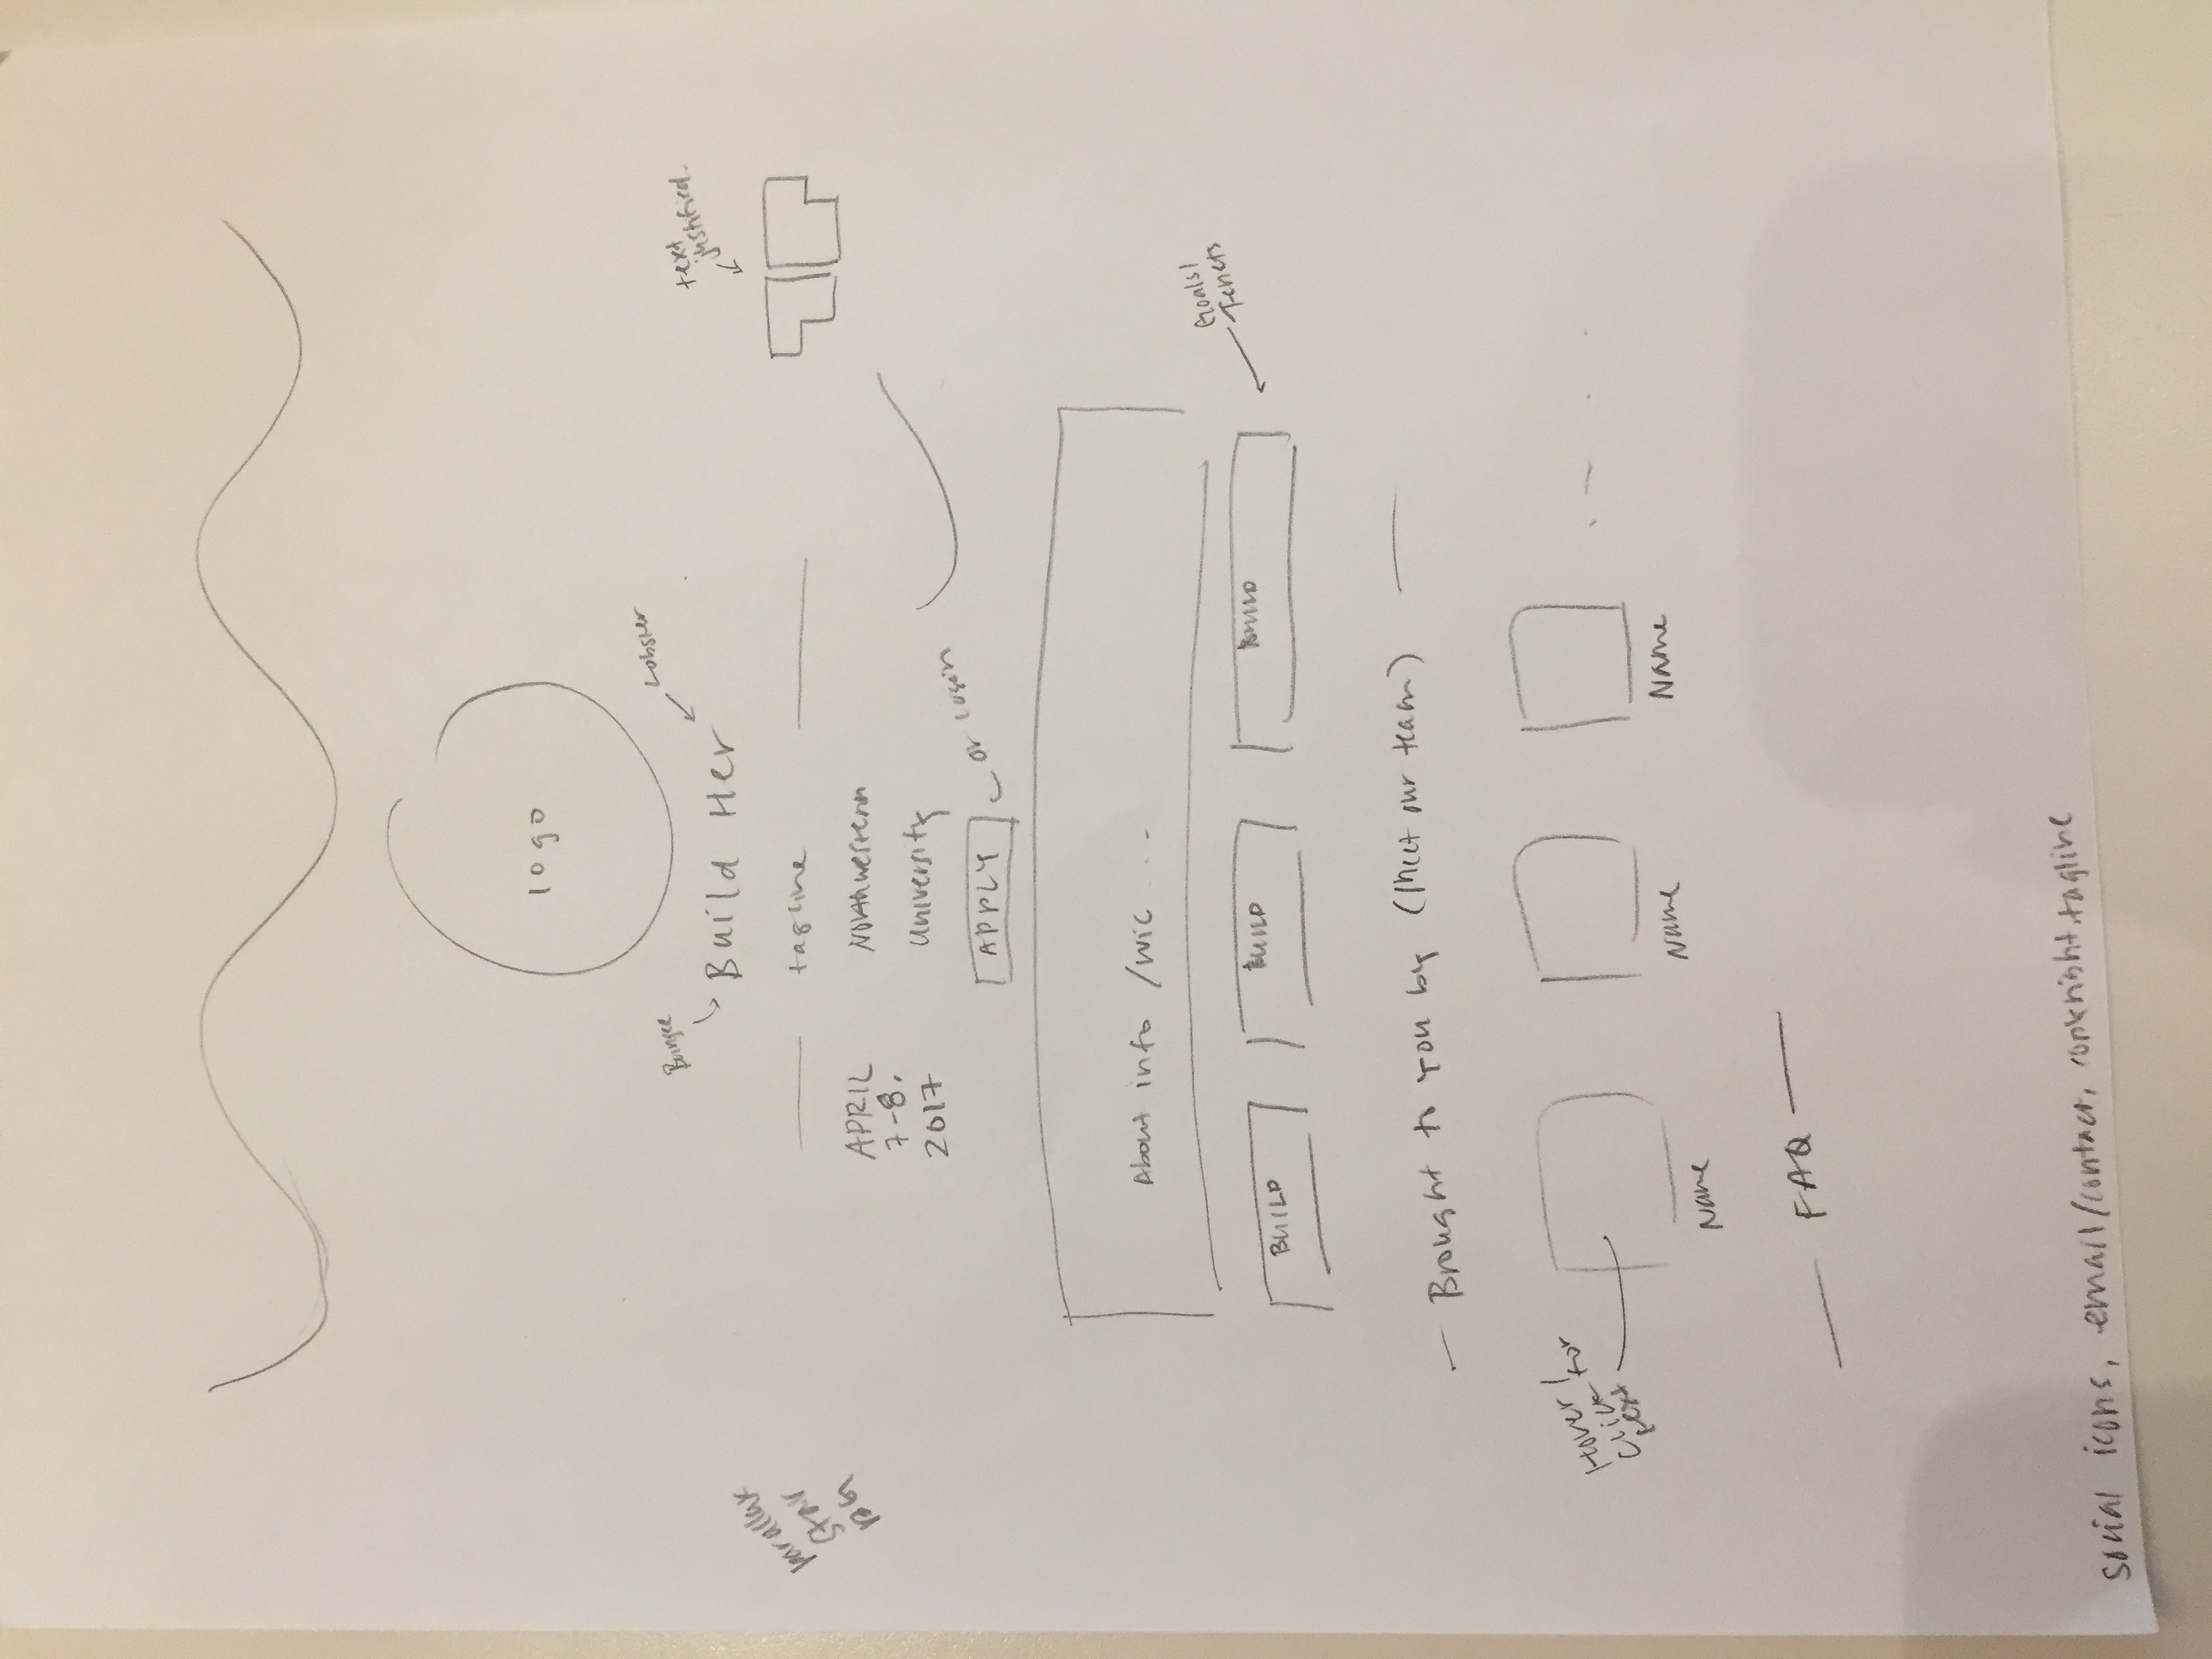 logo
Bungee
Lobster
Build Her
text
justified.
parallax
star
BG
tagline
APRIL
7-8.
2017
Northwestern
University
APPLY
or login
About info /WIC ...
BUILD
BUILD
BUILD
Goals/
Tenets
Brought to you by (Meet our team)
Hover/
Click for
text
Name
Name
Name
FAQ
social icons, email/contact, copyright, tagline